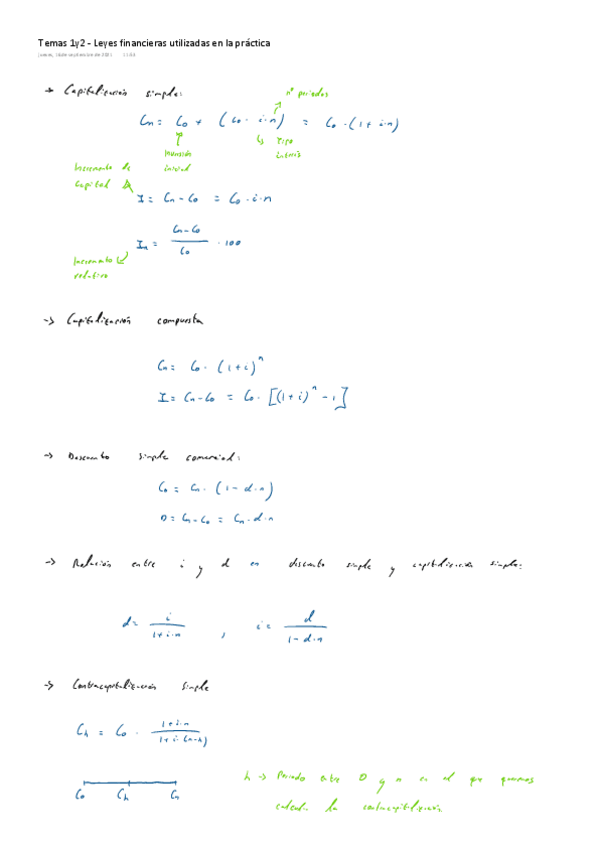 Temas 1y2 - Leyes financieras utilizadas en la práctica
-> Capitalización simple:
nº periodos
Cn = Co + (Co · i · n) = Co · (1 + i · n)
Inversión inicial
Tipo interés
Incremento de capital
I = Cn - Co = Co · i · n
In = (Cn - Co) / Co · 100
Incremento relativo
-> Capitalización compuesta
Cn = Co · (1 + i)^n
I = Cn - Co = Co · [(1 + i)^n - 1]
-> Descuento simple comercial:
Co = Cn · (1 - d · n)
D = Cn - Co = Cn · d · n
-> Relación entre i y d en descuento simple y capitalización simple:
d = i / (1 + i · n) , i = d / (1 - d · n)
-> Contracapitalización simple
Ch = Co · (1 + i · n) / (1 + i · (n - h))
h -> Periodo entre 0 y n en el que queremos
calcular la contracapitalización
Co Ch Cn